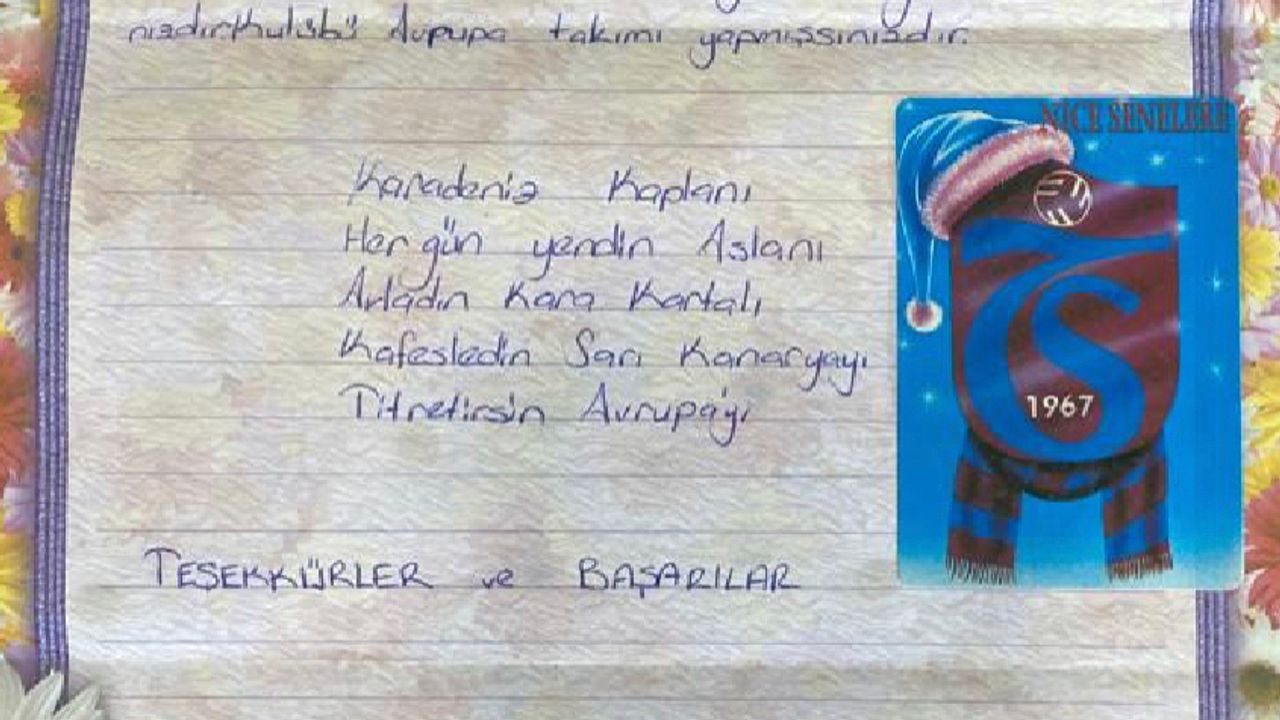 nızdır.Kulübü Avrupa takımı yapmışsınızdır.
NİCE SENELERE
Karadeniz Kaplanı
Hergün yendin Aslanı
Avladın Kara Kartalı
Kafesledin Sarı Kanaryayı
Titretirsin Avrupa'yı
TS
1967
TEŞEKKÜRLER ve BAŞARILAR